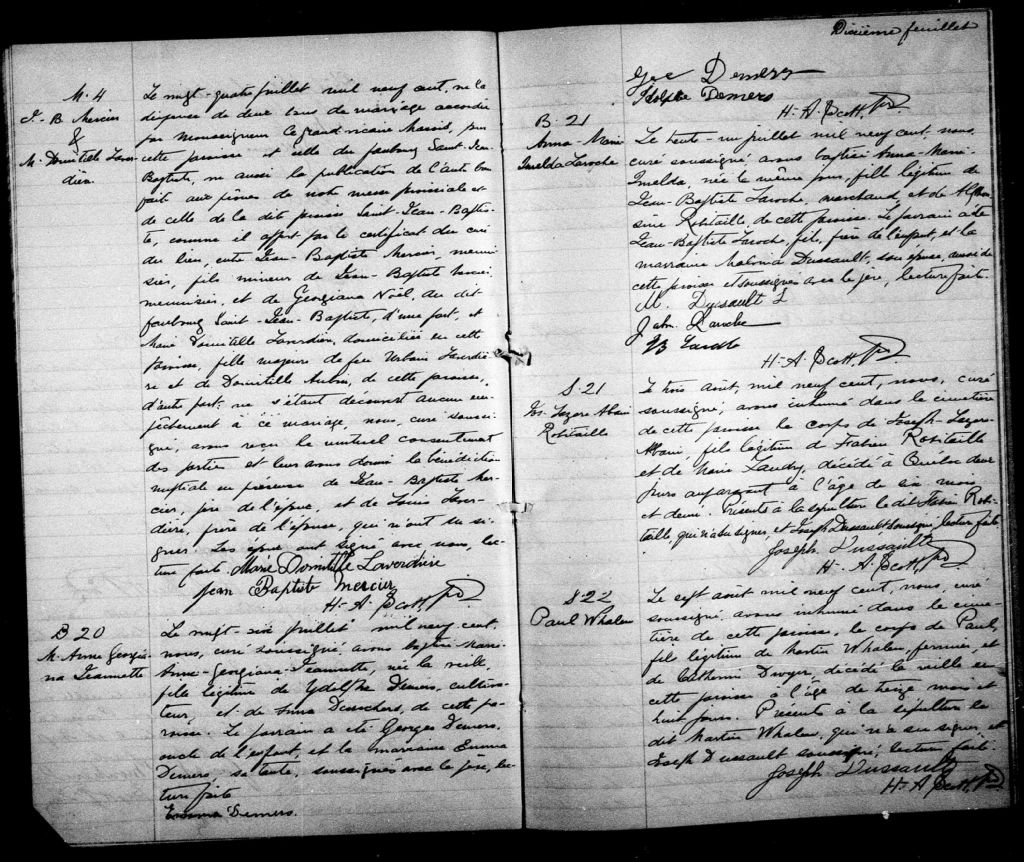 M. 4
J.-B. Mercier
&
M. Domitile Laver-
dière
Le vingt-quatre juillet mil neuf cent, vu la
dispense de deux bans de mariage accordée
par Monseigneur le grand-vicaire Marois, pour
cette paroisse et celle du faubourg Saint-Jean-
Baptiste, vu aussi la publication de l'autre ban
fait aux prônes de notre messe paroissiale et
de celle de la dite paroisse Saint-Jean-Baptis-
te, comme il appert par le certificat du curé
du lieu, entre Jean-Baptiste Mercier, menui-
sier, fils mineur de Jean-Baptiste Mercier,
menuisier, et de Georgiana Noël, du dit
faubourg Saint-Jean-Baptiste, d'une part, et
Marie Domitille Laverdière, domiciliée en cette
paroisse, fille majeure de feu Urbain Laverdiè-
re et de Domitille Aubin, de cette paroisse,
d'autre part; ne s'étant découvert aucun em-
pêchement à ce mariage, nous, curé soussi-
gné, avons reçu le mutuel consentement
des parties et leur avons donné la bénédiction
nuptiale en présence de Jean-Baptiste Mer-
cier, père de l'époux, et de Louis Laver-
dière, frère de l'épouse, qui n'ont su si-
gner. Les époux ont signé avec nous, lec-
ture faite. Marie Domitille Laverdière
Jean Baptiste Mercier
H.-A. Scott, Ptr.
B 20
M. Anne Georgia-
na Jeannette
Le vingt-six juillet mil neuf cent,
nous, curé soussigné avons baptisé Marie-
Anne-Georgiana-Jeannette, née la veille,
fille légitime de Ydolphe Demers, cultiva-
teur, et de Anna Desrochers, de cette pa-
roisse. Le parrain a été Georges Demers,
oncle de l'enfant, et la marraine Emma
Demers, sa tante, soussignés avec le père, lec-
ture faite
Emma Demers.
Dixième feuillet
Geo Demers
Idolphe Demers
H.-A. Scott, Ptr.
B. 21
Anna-Marie
Imelda Laroche
Le trente-un juillet mil neuf cent, nous,
curé soussigné, avons baptisé Anna-Marie-
Imelda, née le même jour, fille légitime de
Jean-Baptiste Laroche, marchand, et de Alphon-
sine Robitaille, de cette paroisse. Le parrain a été
Jean-Baptiste Laroche, fils, frère de l'enfant, et la
marraine Malvina Dussault, son épouse, aussi de
cette paroisse et soussignés avec le père, lecture faite.
M. Dussault L
J abn. Laroche
JB Laroche
H.-A. Scott, Ptr.
S. 21
Jos. Lazare Albani
Robitaille
Le trois août, mil neuf cent, nous, curé
soussigné, avons inhumé dans le cimetière
de cette paroisse le corps de Joseph-Lazare-
Albani, fils légitime de Fabien Robitaille
et de Marie Landry, décédé à Québec deux
jours auparavant à l'âge de six mois
et demi. Présents à la sépulture le dit Fabien Robi-
taille, qui n'a su signer, et Joseph Dussault soussigné, lecture faite
Joseph Dussault
H.-A. Scott, Ptr.
S. 22
Paul Whalen
Le sept août mil neuf cent, nous, curé
soussigné avons inhumé dans le cime-
tière de cette paroisse, le corps de Paul,
fils légitime de Martin Whalen, fermier, et
de Catherine Dwyer, décédé la veille en
cette paroisse à l'âge de treize mois et
huit jours. Présents à la sépulture le
dit Martin Whalen, qui n'a su signer, et
Joseph Dussault soussigné; lecture faite.
Joseph Dussault
H.-A. Scott, Ptr.